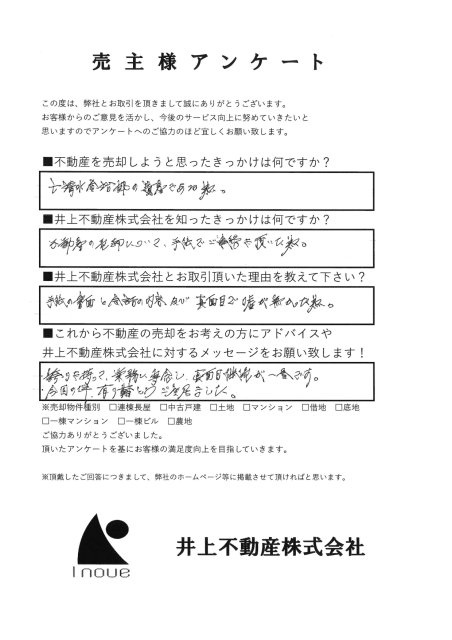 売主様アンケート
この度は、弊社とお取引を頂きまして誠にありがとうございます。
お客様からのご意見を活かし、今後のサービス向上に努めていきたいと
思いますのでアンケートへのご協力のほど宜しくお願い致します。
■不動産を売却しようと思ったきっかけは何ですか？
■井上不動産株式会社を知ったきっかけは何ですか？
不動産の売却について、手紙でご連絡を頂いた為。
■井上不動産株式会社とお取引頂いた理由を教えて下さい？
手紙の書面と
■これから不動産の売却をお考えの方にアドバイスや
井上不動産株式会社に対するメッセージをお願い致します！
誇りを持って、業務に専念し、真面目
今回の件、有り難とうございました。
※売却物件種別 □連棟長屋 □中古戸建 □土地 □マンション □借地 □底地
□一棟マンション □一棟ビル □農地
ご協力ありがとうございました。
頂いたアンケートを基にお客様の満足度向上を目指していきます。
※頂戴したご回答につきまして、弊社のホームページ等に掲載させて頂ければと思います。
Inoue
井上不動産株式会社